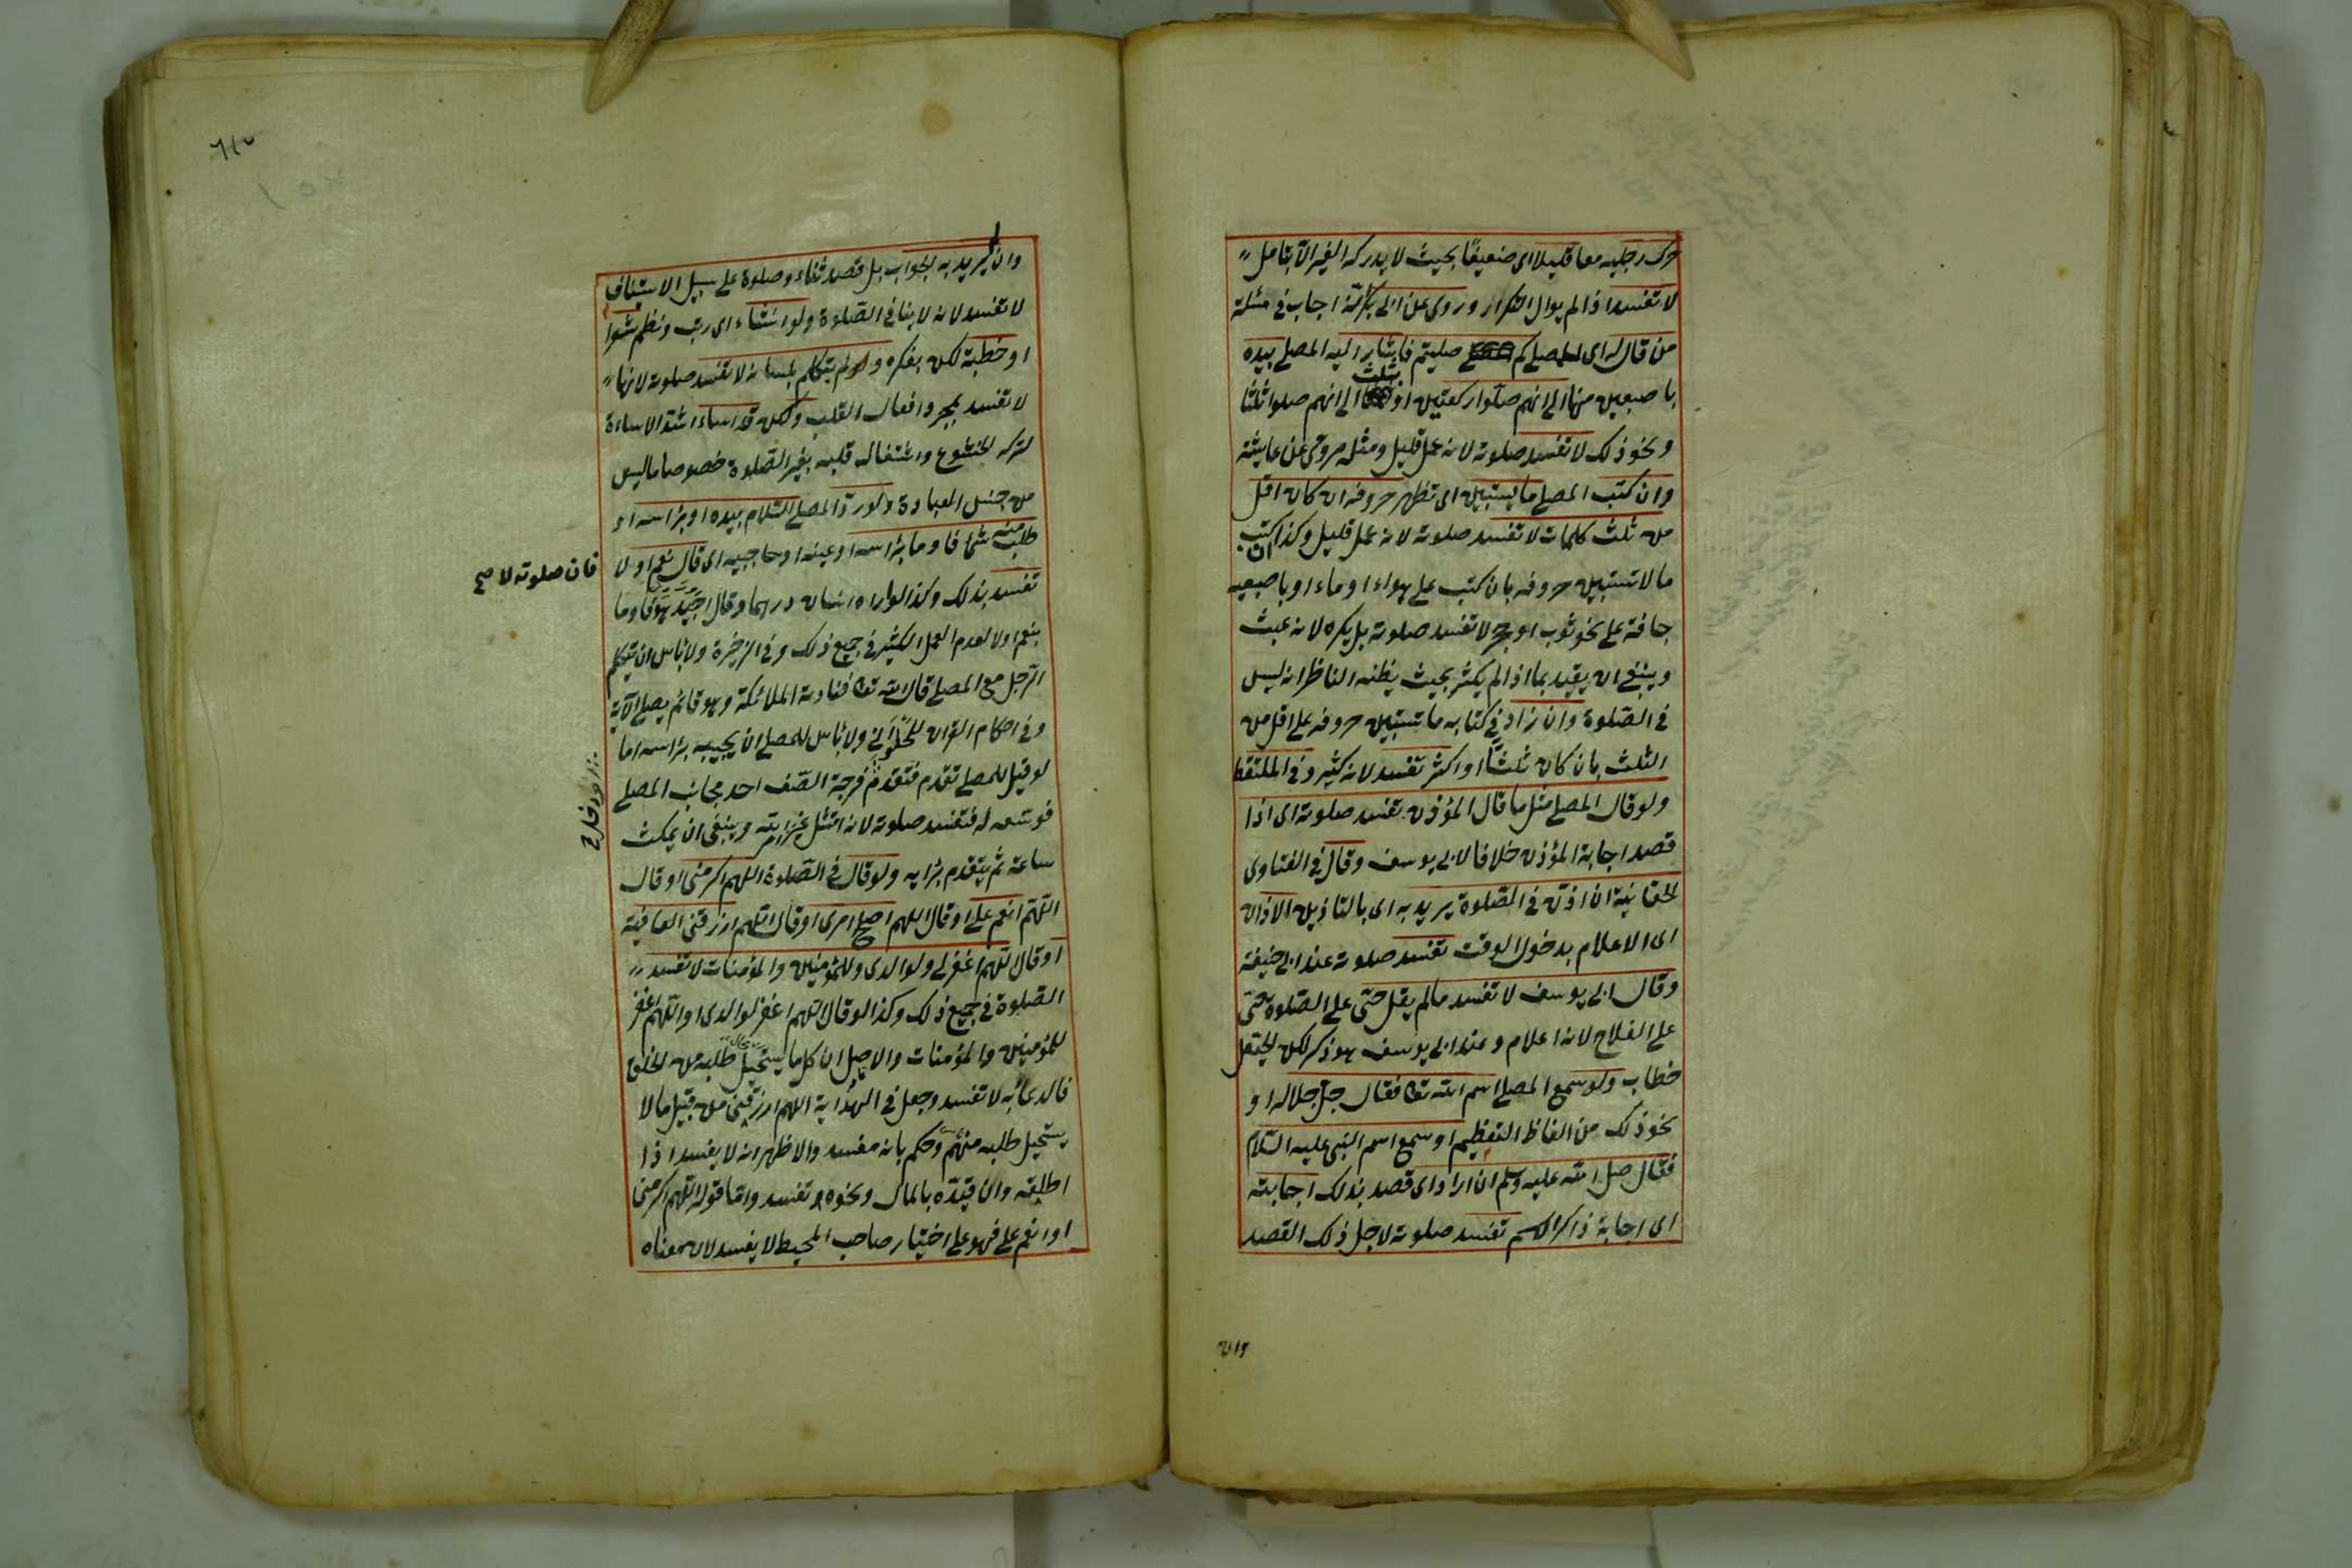 حرك رجليه معا قليلا اى ضعيفا بحيث لا يدركه الغير الا بتامل
لا تفسد اذا لم يوال التكرار وروى عن ابى بكر انه اجاب فى مسئلة
من قال له اى للمصلى كم صليتم فاشار اليه المصلى بيده
باصبعين منها الى انهم صلوا ركعتين او بثلث الى انهم صلوا ثلثا
ونحو ذلك لا تفسد صلوته لانه عمل قليل ومثله مروى عن عايشة
وان كتب المصلى ما يستبين اى تظهر حروفه ان كان اقل
من ثلث كلمات لا تفسد صلوته لانه عمل قليل وكذا ان كتب
ما لا تستبين حروفه بان كتب على هواء او ماء او باصبعيه
جافة على نحو ثوب او حجر لا تفسد صلوته بل يكره لانه عبث
وينبغى ان يقيد بما اذا لم يكثر بحيث يظنه الناظر انه ليس
فى الصلوة وان زاد فى كتابه ما تستبين حروفه على اقل من
الثلث بان كان ثلثا او اكثر تفسد لانه كثير وفى الملتقط
ولو قال المصلى مثل ما قال المؤذن تفسد صلوته اى اذا
قصد اجابة المؤذن خلافا لابى يوسف وقال فى الفتاوى
الخاقانية ان اذن فى الصلوة يريد به اى بالتاذين الاذان
اى الاعلام بدخول الوقت تفسد صلوته عند ابى حنيفة
وقال ابى يوسف لا تفسد ما لم يقل حى على الصلوة حى
على الفلاح لانه اعلام وعند ابى يوسف هو ذكر لكن الحيعل
خطاب ولو سمع المصلى اسم الله تعا فقال جل جلاله او
نحو ذلك من الفاظ التعظيم او سمع اسم النبى عليه السلام
فقال صل الله عليه وسلم ان اراد اى قصد بذلك اجابته
اى اجابة ذاكر الاسم تفسد صلوته لاجل ذلك القصد
وان
وان لم يريد به الجواب بل قصد ثناء وصلوة على سبيل الاستيناف
لا تفسد لانه لا ينافى الصلوة ولو انشاء اى رتب ونظم شعرا
او خطبة لكن بفكره ولم يتكلم بلسانه لا تفسد صلوته لانها
لا تفسد بمجرد افعال القلب ولكن قد اساء اشد الاساءة
لتركه الخشوع واشتغال قلبه بغير الصلوة خصوصا ما ليس
من جنس العبادة ولو رد المصلى السلام بيده او براسه او
طلب منه شئ فاوما براسه او عينه او حاجبيه اى قال نعم او لا
فان صلوته لا صح
تفسد بذلك وكذا لو اراه انسان درهما وقال اجيد هو فاوما
بنعم او لا لعدم العمل الكثير فى جميع ذلك وفى الذخيرة ولا باس ان يتكلم
الرجل مع المصلى قال الله تعا فنادته الملائكة وهو قائم يصلى الآية
وفى احكام القران للحلوانى ولا باس للمصلى ان يجيبه براسه اما
لو قيل للمصلى تقدم فتقدم فرجة الصف احد فجانب المصلى
فوسع له فتفسد صلوته لانه امتثل غير امر الله وينبغى ان يمكث
ساعة ثم يتقدم برايه ولو قال فى الصلوة اللهم اكرمنى او قال
اللهم انعم على او قال اللهم اصلح امرى او قال اللهم ارزقنى العافية
او قال اللهم اغفر لى ولوالدى وللمؤمنين والمؤمنات لا تفسد
الصلوة فى جميع ذلك وكذا لو قال اللهم اغفر لوالدى او اللهم اغفر
للمؤمنين والمؤمنات والاصل ان كل ما يستحيل طلبه من الخلق
فالدعاء به لا تفسد وجعل فى الهداية اللهم ارزقنى من قبيل ما لا
يستحيل طلبه منهم وحكم بانه مفسد والاظهر انه لا يفسد اذا
اطلقه وان قيده بالمال ونحوه تفسد واما قوله اللهم اكرمنى
او انعم على فهو على اختيار صاحب المحيط لا يفسد لان معناه